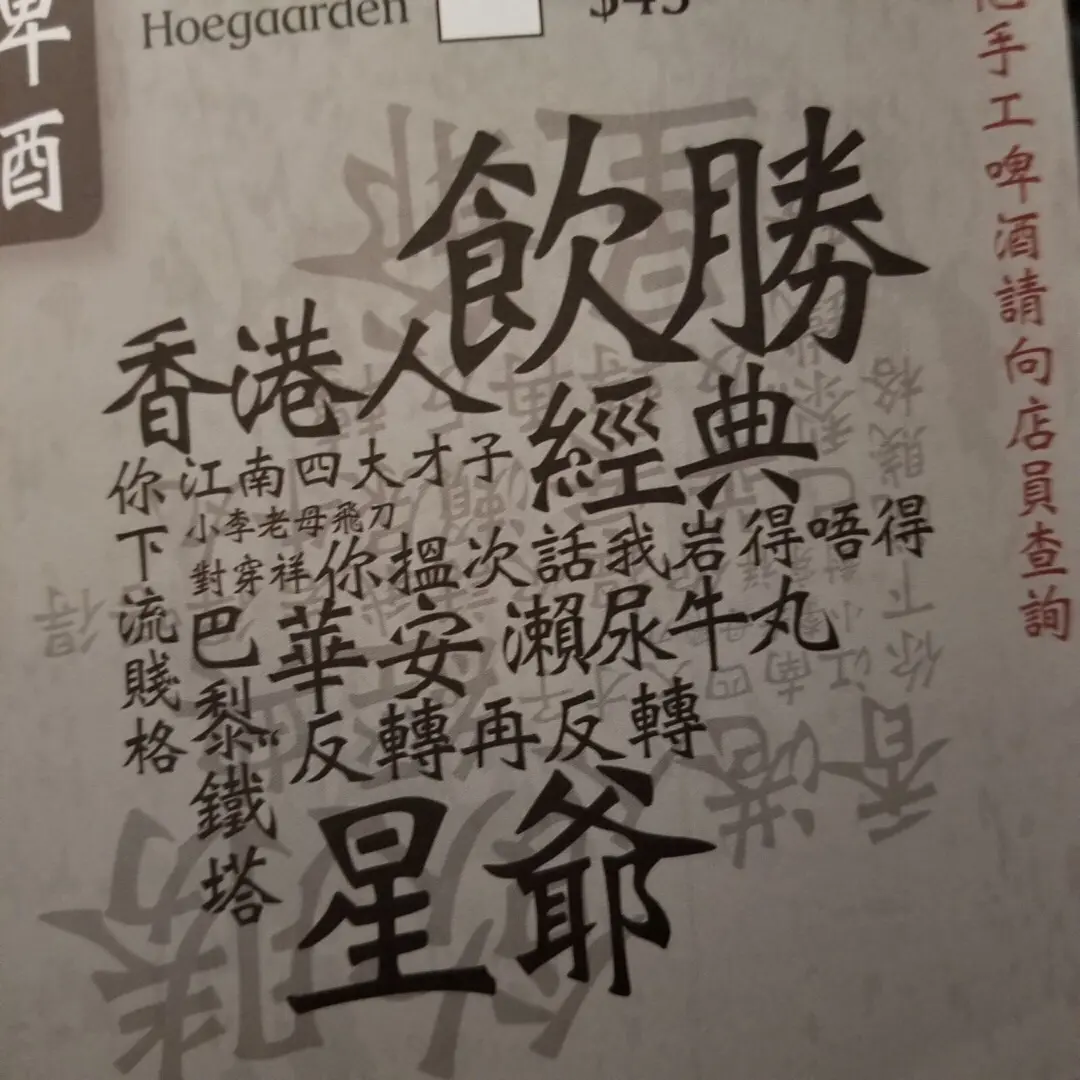 啤酒
Hoegaarden
飲勝
香港人
經典
你下流賤格
江南四大才子
小李老母飛刀
對穿祥
你搵次話我岩得唔得
巴黎鐵塔
華安
瀨尿牛丸
反轉再反轉
星爺
手工啤酒請向店員查詢